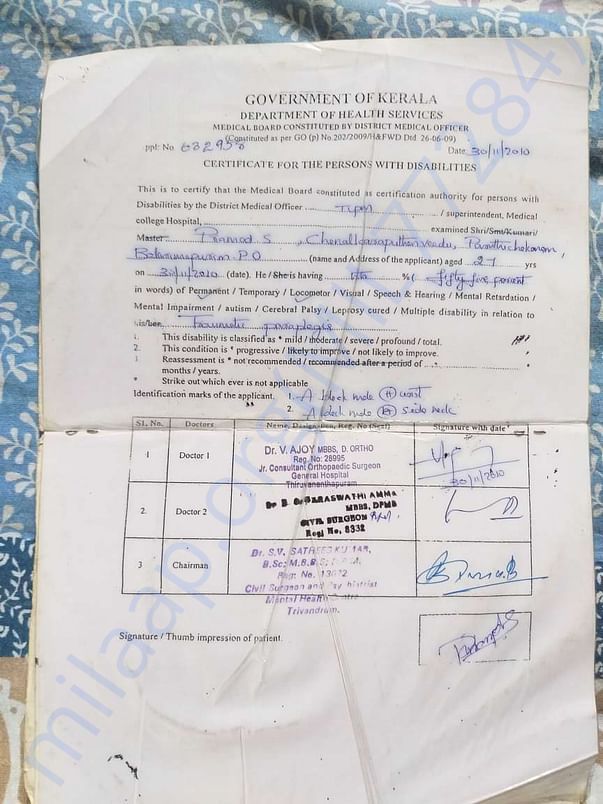 GOVERNMENT OF KERALA
DEPARTMENT OF HEALTH SERVICES
MEDICAL BOARD CONSTITUTED BY DISTRICT MEDICAL OFFICER
(Constituted as per GO (p) No.202/2009/H&FWD Dtd 26-06-09)
ppl: No. Date: 30/11/2010
CERTIFICATE FOR THE PERSONS WITH DISABILITIES
This is to certify that the Medical Board constituted as certification authority for persons with
Disabilities by the District Medical Officer ..... TVPM ..... / superintendent, Medical
college Hospital,..... examined Shri/Smt/Kumari/
Master..... Pramod S,
P.O ..... (name and Address of the applicant) aged 27 yrs
on 30/11/2010 (date). He / She is having ..... % ( fifty five percent
in words) of Permanent / Temporary / Locomotor / Visual / Speech & Hearing / Mental Retardation /
Mental Impairment / autism / Cerebral Palsy / Leprosy cured / Multiple disability in relation to
his/her..... Traumatic paraplegia .....
1. This disability is classified as * mild / moderate / severe / profound / total.
2. This condition is * progressive / likely to improve / not likely to improve.
3. Reassessment is * not recommended / recommended after a period of .....
months / years.
* Strike out which ever is not applicable
Identification marks of the applicant. 1. A black mole (R) waist
2. A black mole (R) side neck
Sl. No. Doctors Name, Designation, Reg. No (Seal) Signature with date
1 Doctor 1 Dr. V. AJOY MBBS, D. ORTHO
Reg. No: 28995
Jr. Consultant Orthopaedic Surgeon
General Hospital
Thiruvananthapuram
30/11/2010
2. Doctor 2 SARASWATHI AMMA
MBBS, DPMR
CIVIL SURGEON
Reg No, 8332
3 Chairman Dr. S.V. SATHEES KUMAR,
B.Sc; M.B.B.S;
Reg: No.
Civil Surgeon and District
Mental Health Centre
Trivandrum.
Signature / Thumb impression of patient.
milaap.org